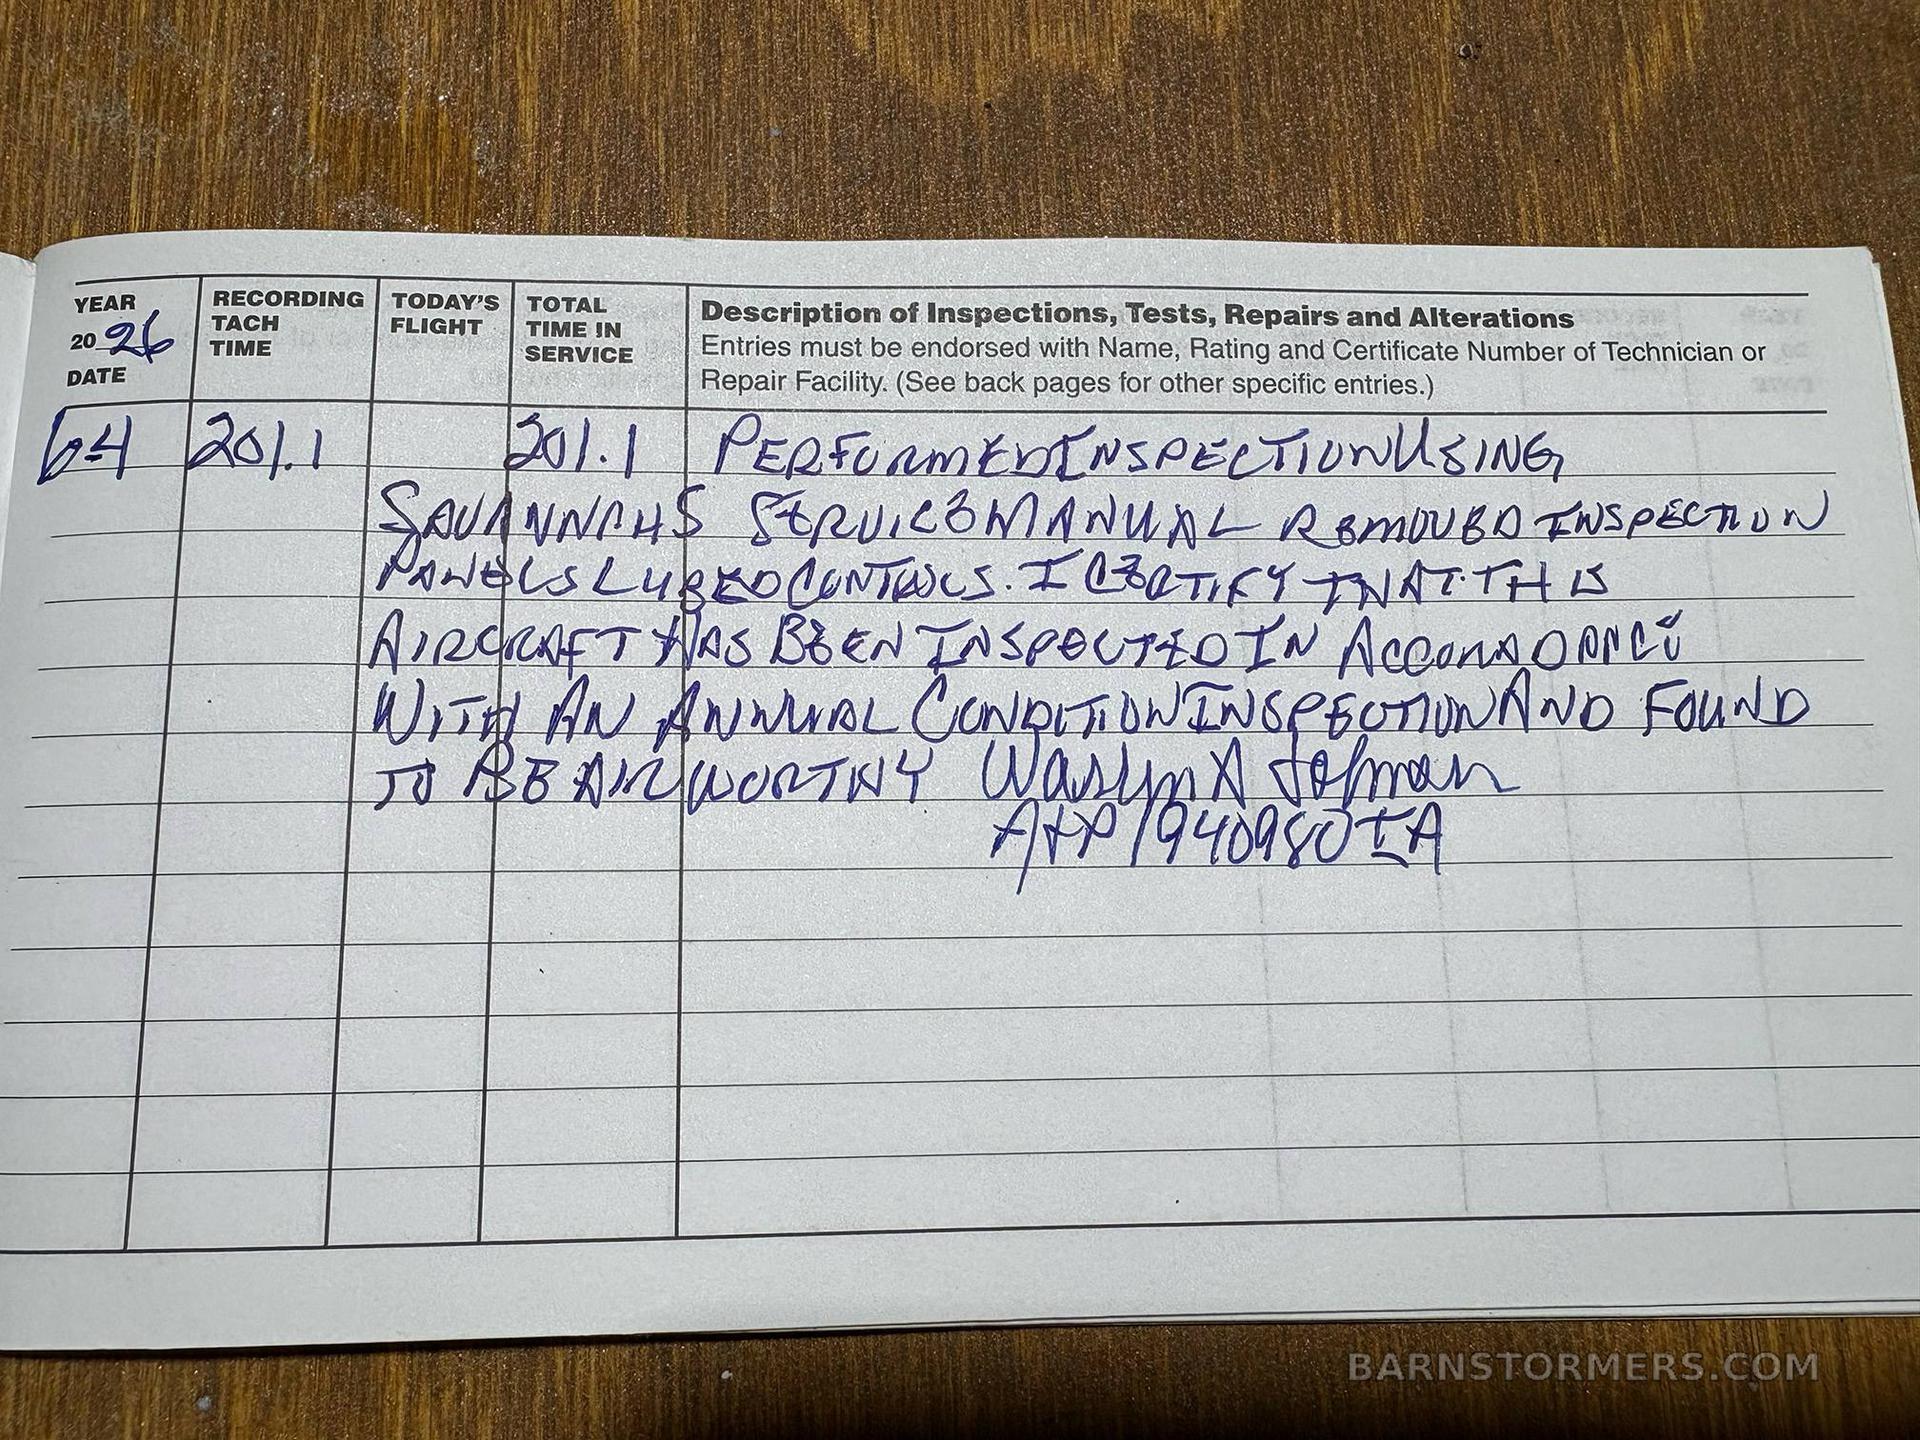 YEAR
2026
DATE
RECORDING
TACH
TIME
TODAY'S
FLIGHT
TOTAL
TIME IN
SERVICE
Description of Inspections, Tests, Repairs and Alterations
Entries must be endorsed with Name, Rating and Certificate Number of Technician or
Repair Facility. (See back pages for other specific entries.)
6-4 201.1 201.1 PERFORMED INSPECTION USING
SAVANNAH S SERVICE MANUAL REMOVED INSPECTION
PANELS LUBED CONTROLS. I CERTIFY THAT THIS
AIRCRAFT HAS BEEN INSPECTED IN
WITH AN ANNUAL CONDITION INSPECTION AND FOUND
TO BE AIRWORTHY
A+P 1940980 IA
BARNSTORMERS.COM